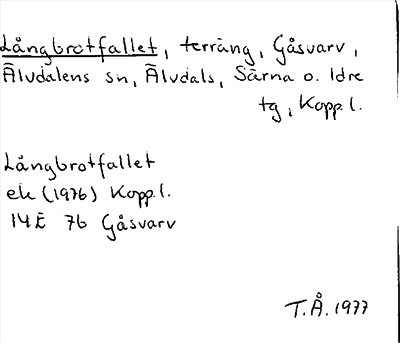 Långbrotfallet, terräng, Gåsvarv,
Älvdalens sn, Älvdals, Särna o. Idre
tg, Kopp.l.
Långbrotfallet
ek (1976) Kopp.l.
14E 7b Gåsvarv
T.Å. 1977